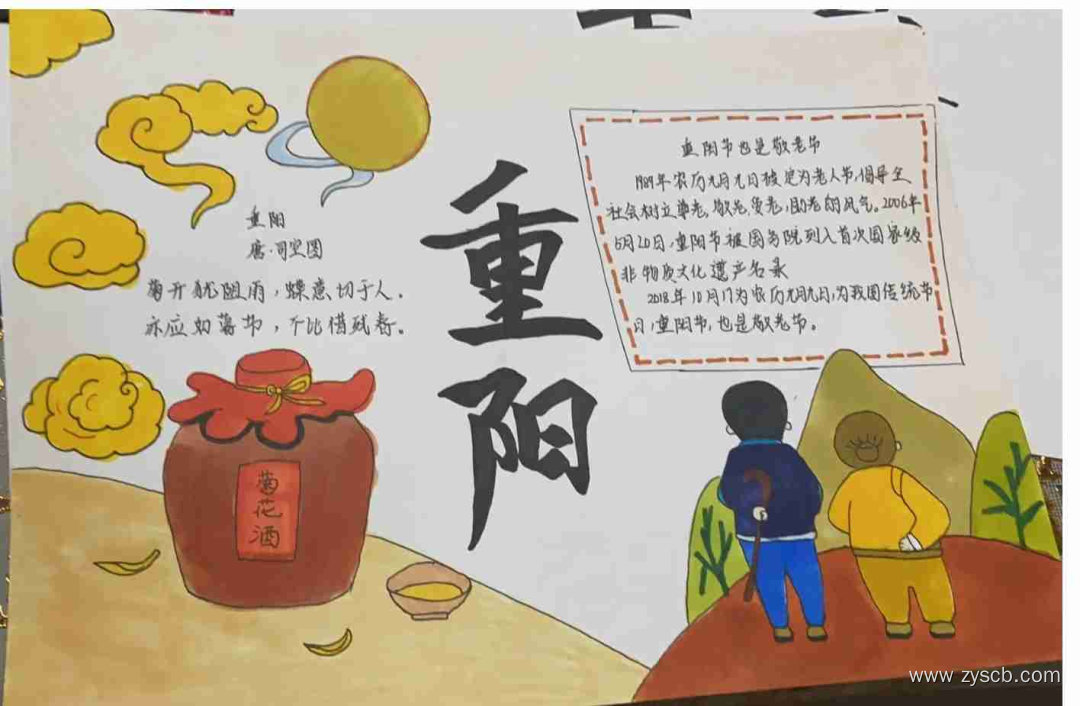 重阳
唐·司空图
菊开犹阻雨，蝶意切于人。
亦应知暮节，不比惜残春。
重阳
菊花酒
重阳节也是敬老节
1989年农历九月九日被定为老人节,倡导全
社会树立尊老、敬老、爱老,助老的风气。2006年
5月20日,重阳节被国务院列入首次国家级
非物质文化遗产名录
2018年10月17为农历九月九日,为我国传统节
日,重阳节,也是敬老节。
www.zyscb.com